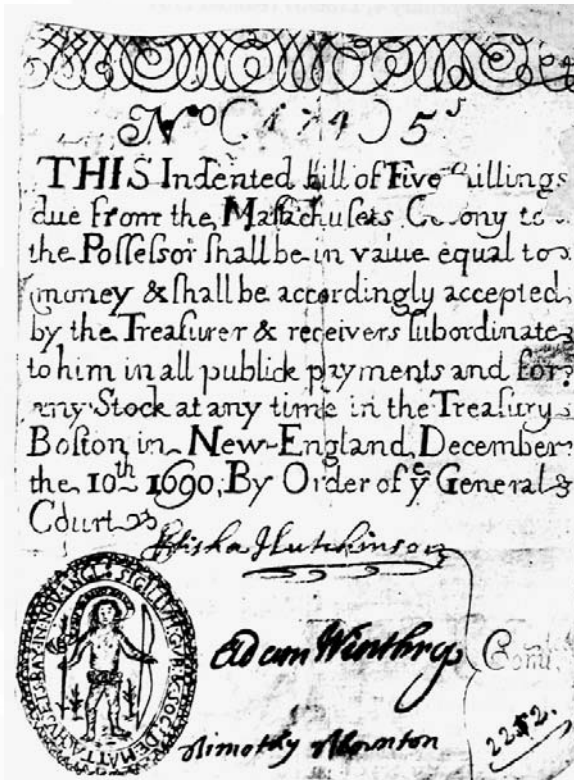 No (4 7 4) 5s
THIS Indented Bill of Five Shillings
due from the Massachusets Colony to
the Possessor shall be in value equal to
money & shall be accordingly accepted
by the Treasurer & receivers subordinate
to him in all publick payments and for
any Stock at any time in the Treasury
Boston in New-England, December
the 10th 1690, By Order of ye General
Court
Elisha Hutchinson
Adam Winthrop
Timothy Thornton
Comte